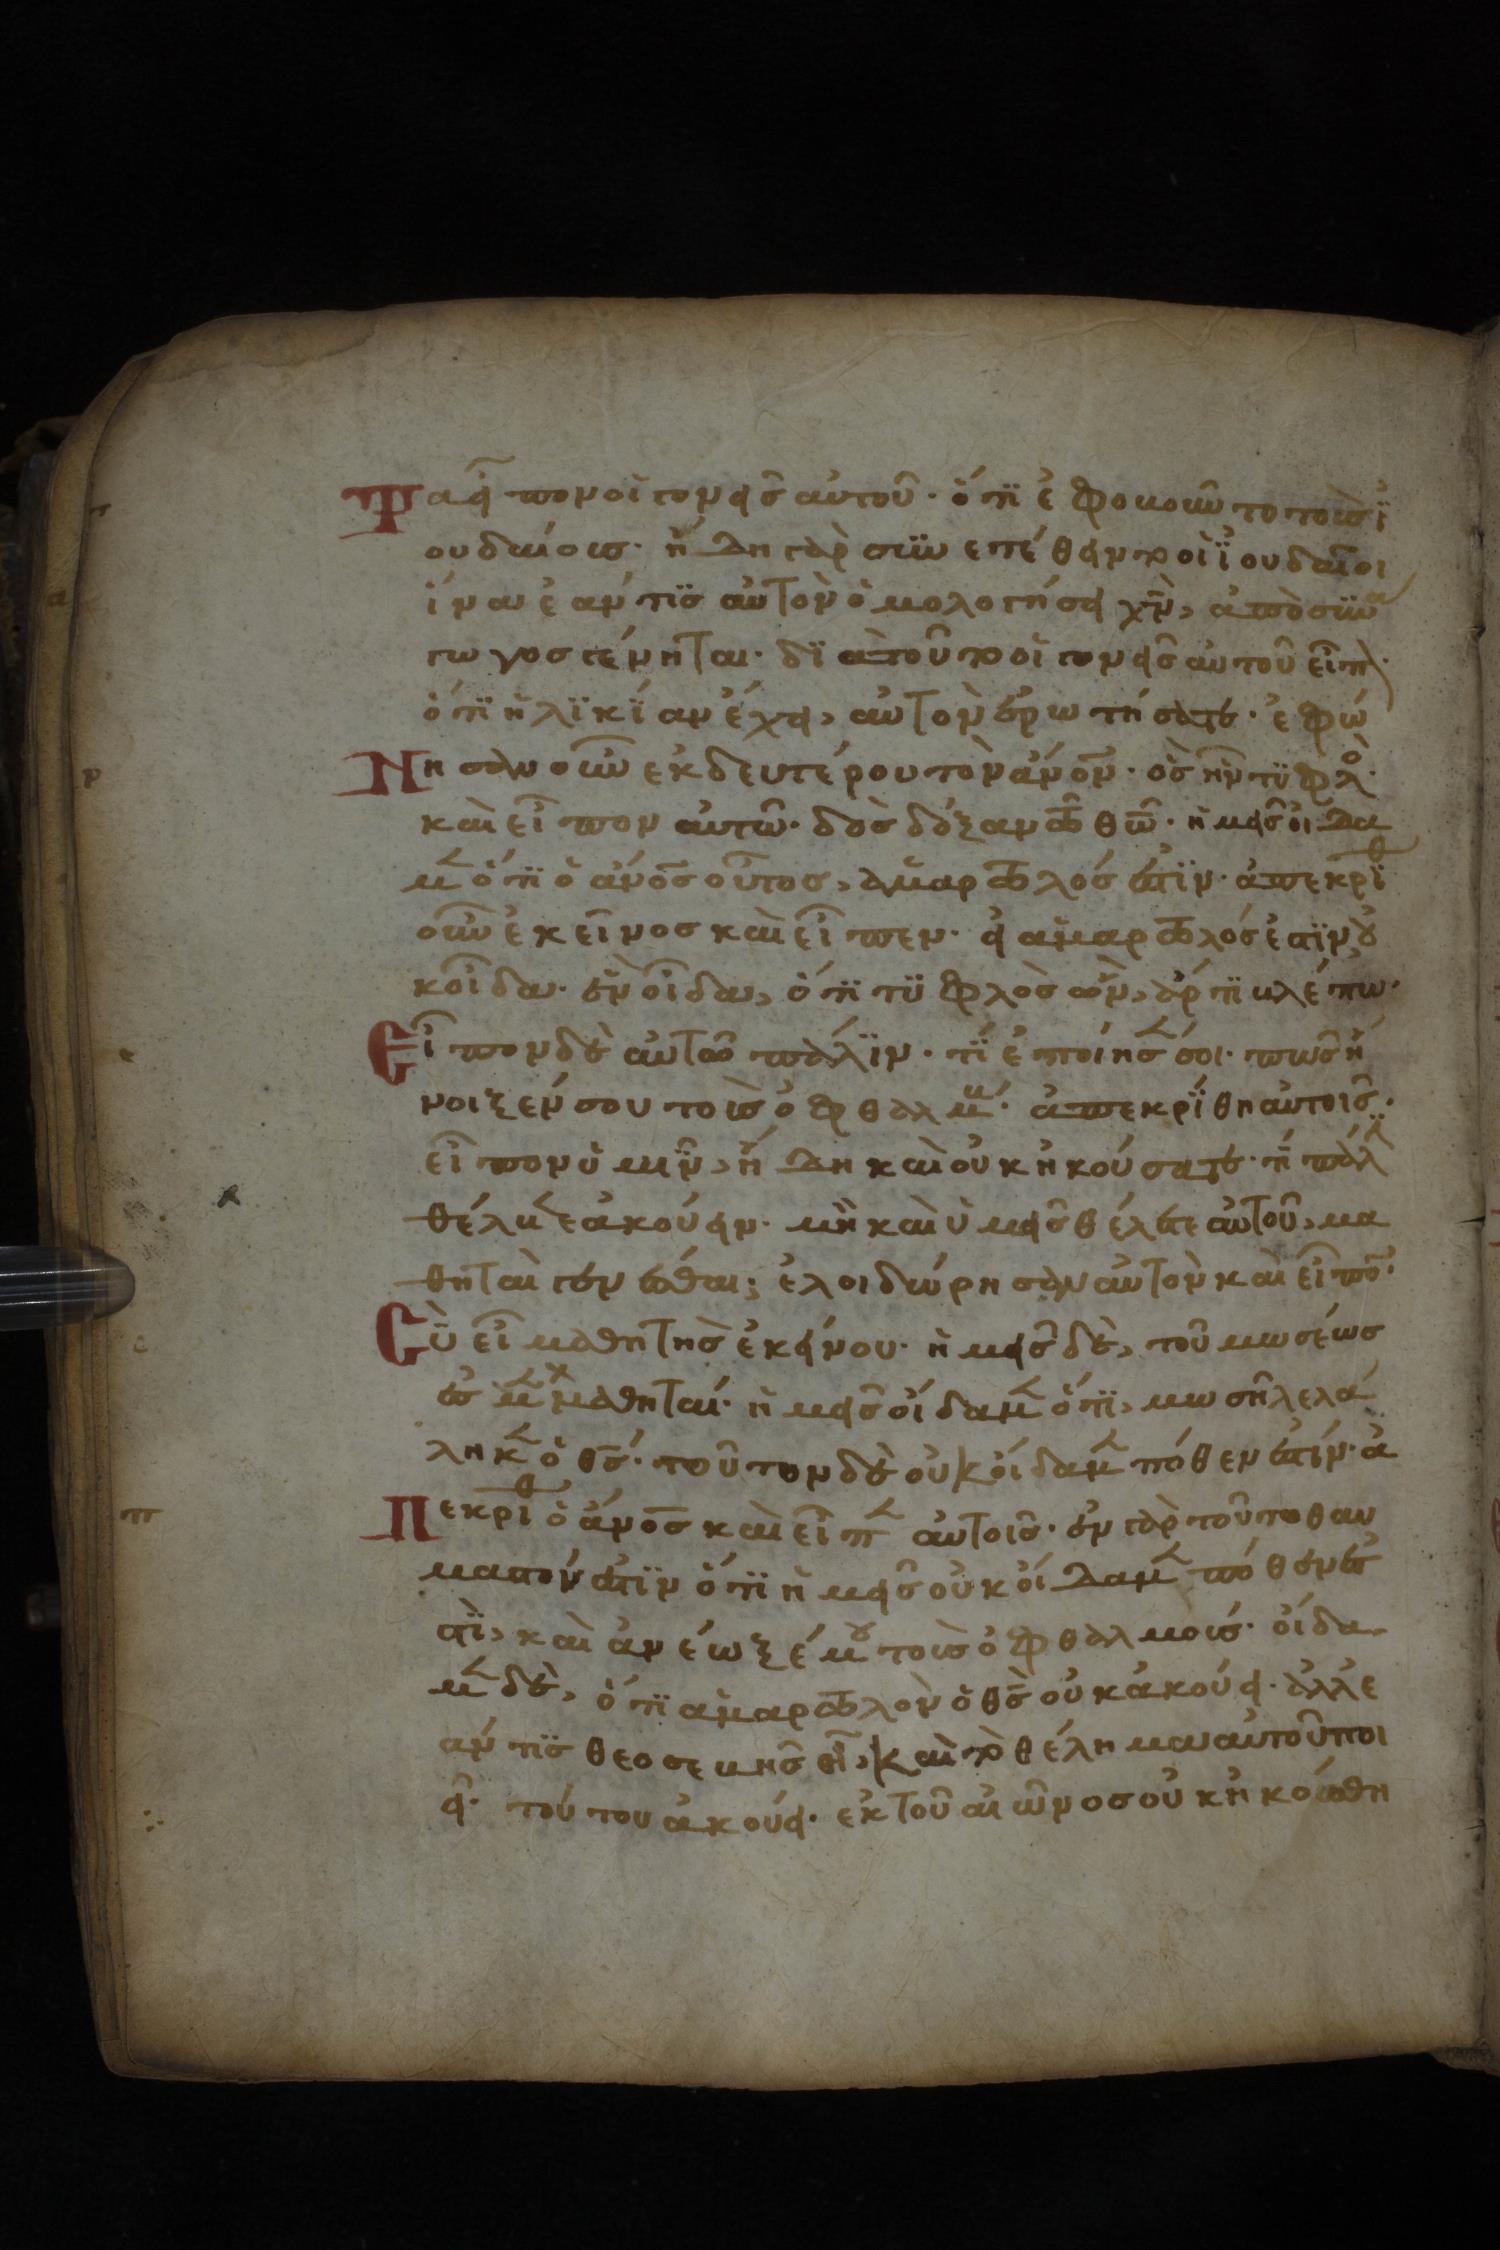 Ταῦτα εἶπον οἱ γονεῖς αὐτοῦ· ὅτι ἐφοβοῦντο τοὺς ἰ
ουδαίους· ἤδη γὰρ συνετέθειντο οἱ ἰουδαῖοι
ἵνα ἐάν τις αὐτὸν ὁμολογήσει χν̅, ἀποσυνα
γωγος γένηται· διατοῦτο οἱ γονεῖς αὐτοῦ εἶπ
ὅτι ἡλικίαν ἔχει, αὐτὸν ἐρωτήσατε· ἐφώ
Νησαν οὖν ἐκ δευτέρου τὸν ἄνον̅· ὃς ἦν τυφλο
καὶ εἶπον αὐτῶ· δὸς δόξαν τῶ θω̅· ἡμεῖς οἴδα
μ ὅτι ὁ ἄνος̅ οὗτος, ἁμαρτωλός ἐστιν· ἀπεκρίθ
οὖν ἐκεῖνος καὶ εἶπεν· εἰ ἁμαρτωλός ἐστιν οὐ
κ οἶδα· ἓν οἶδα, ὅτι τυφλὸς ὢν, ἄρτι βλέπω·
Εἶπον δὲ αὐτῶ πάλιν· τί ἐποίησέ σοι· πῶς ἤ
νοιξέν σου τοὺς ὀφθαλμ· ἀπεκρίθη αὐτοῖς·
εἶπον ὑμῖν, ἤδη καὶ οὐκ ἠκούσατε· τί πάλι
θέλετε ἀκούειν· μὴ καὶ ὑμεῖς θέλετε αὐτοῦ, μα
θηταὶ γενέσθαι; ἐλοιδώρησαν αὐτὸν καὶ εἶπο·
Σὺ εἶ μαθητὴς ἐκείνου· ἡμεῖς δὲ, τοῦ μωσέως
ἐσμ μαθηταί· ἡμεῖς οἴδαμ ὅτι, μωσῆ λελά
ληκ ὁ θς̅· τοῦτον δὲ οὐκ οἴδαμ πόθεν ἐστίν· ἀ
Πεκρίθ ὁ ἄνος̅ καὶ εἶπ αὐτοῖς· ἐν γὰρ τοῦτο θαυ
μαστόν ἐστιν ὅτι ἡμεῖς οὐκ οἴδαμ πόθεν ἐσ
τὶ, καὶ ἀνέωξέ μου τοὺς ὀφθαλμούς· οἴδα
μ δὲ, ὅτι ἁμαρτωλὸν ὁ θς̅ οὐκ ἀκούει· ἀλλ ἐ
άν τις θεοσεβὴς ἦ, καὶ τὸ θέλημα αὐτοῦ ποι
εῖ· τούτου ἀκούει· ἐκ τοῦ αἰῶνος οὐκ ἠκούσθη